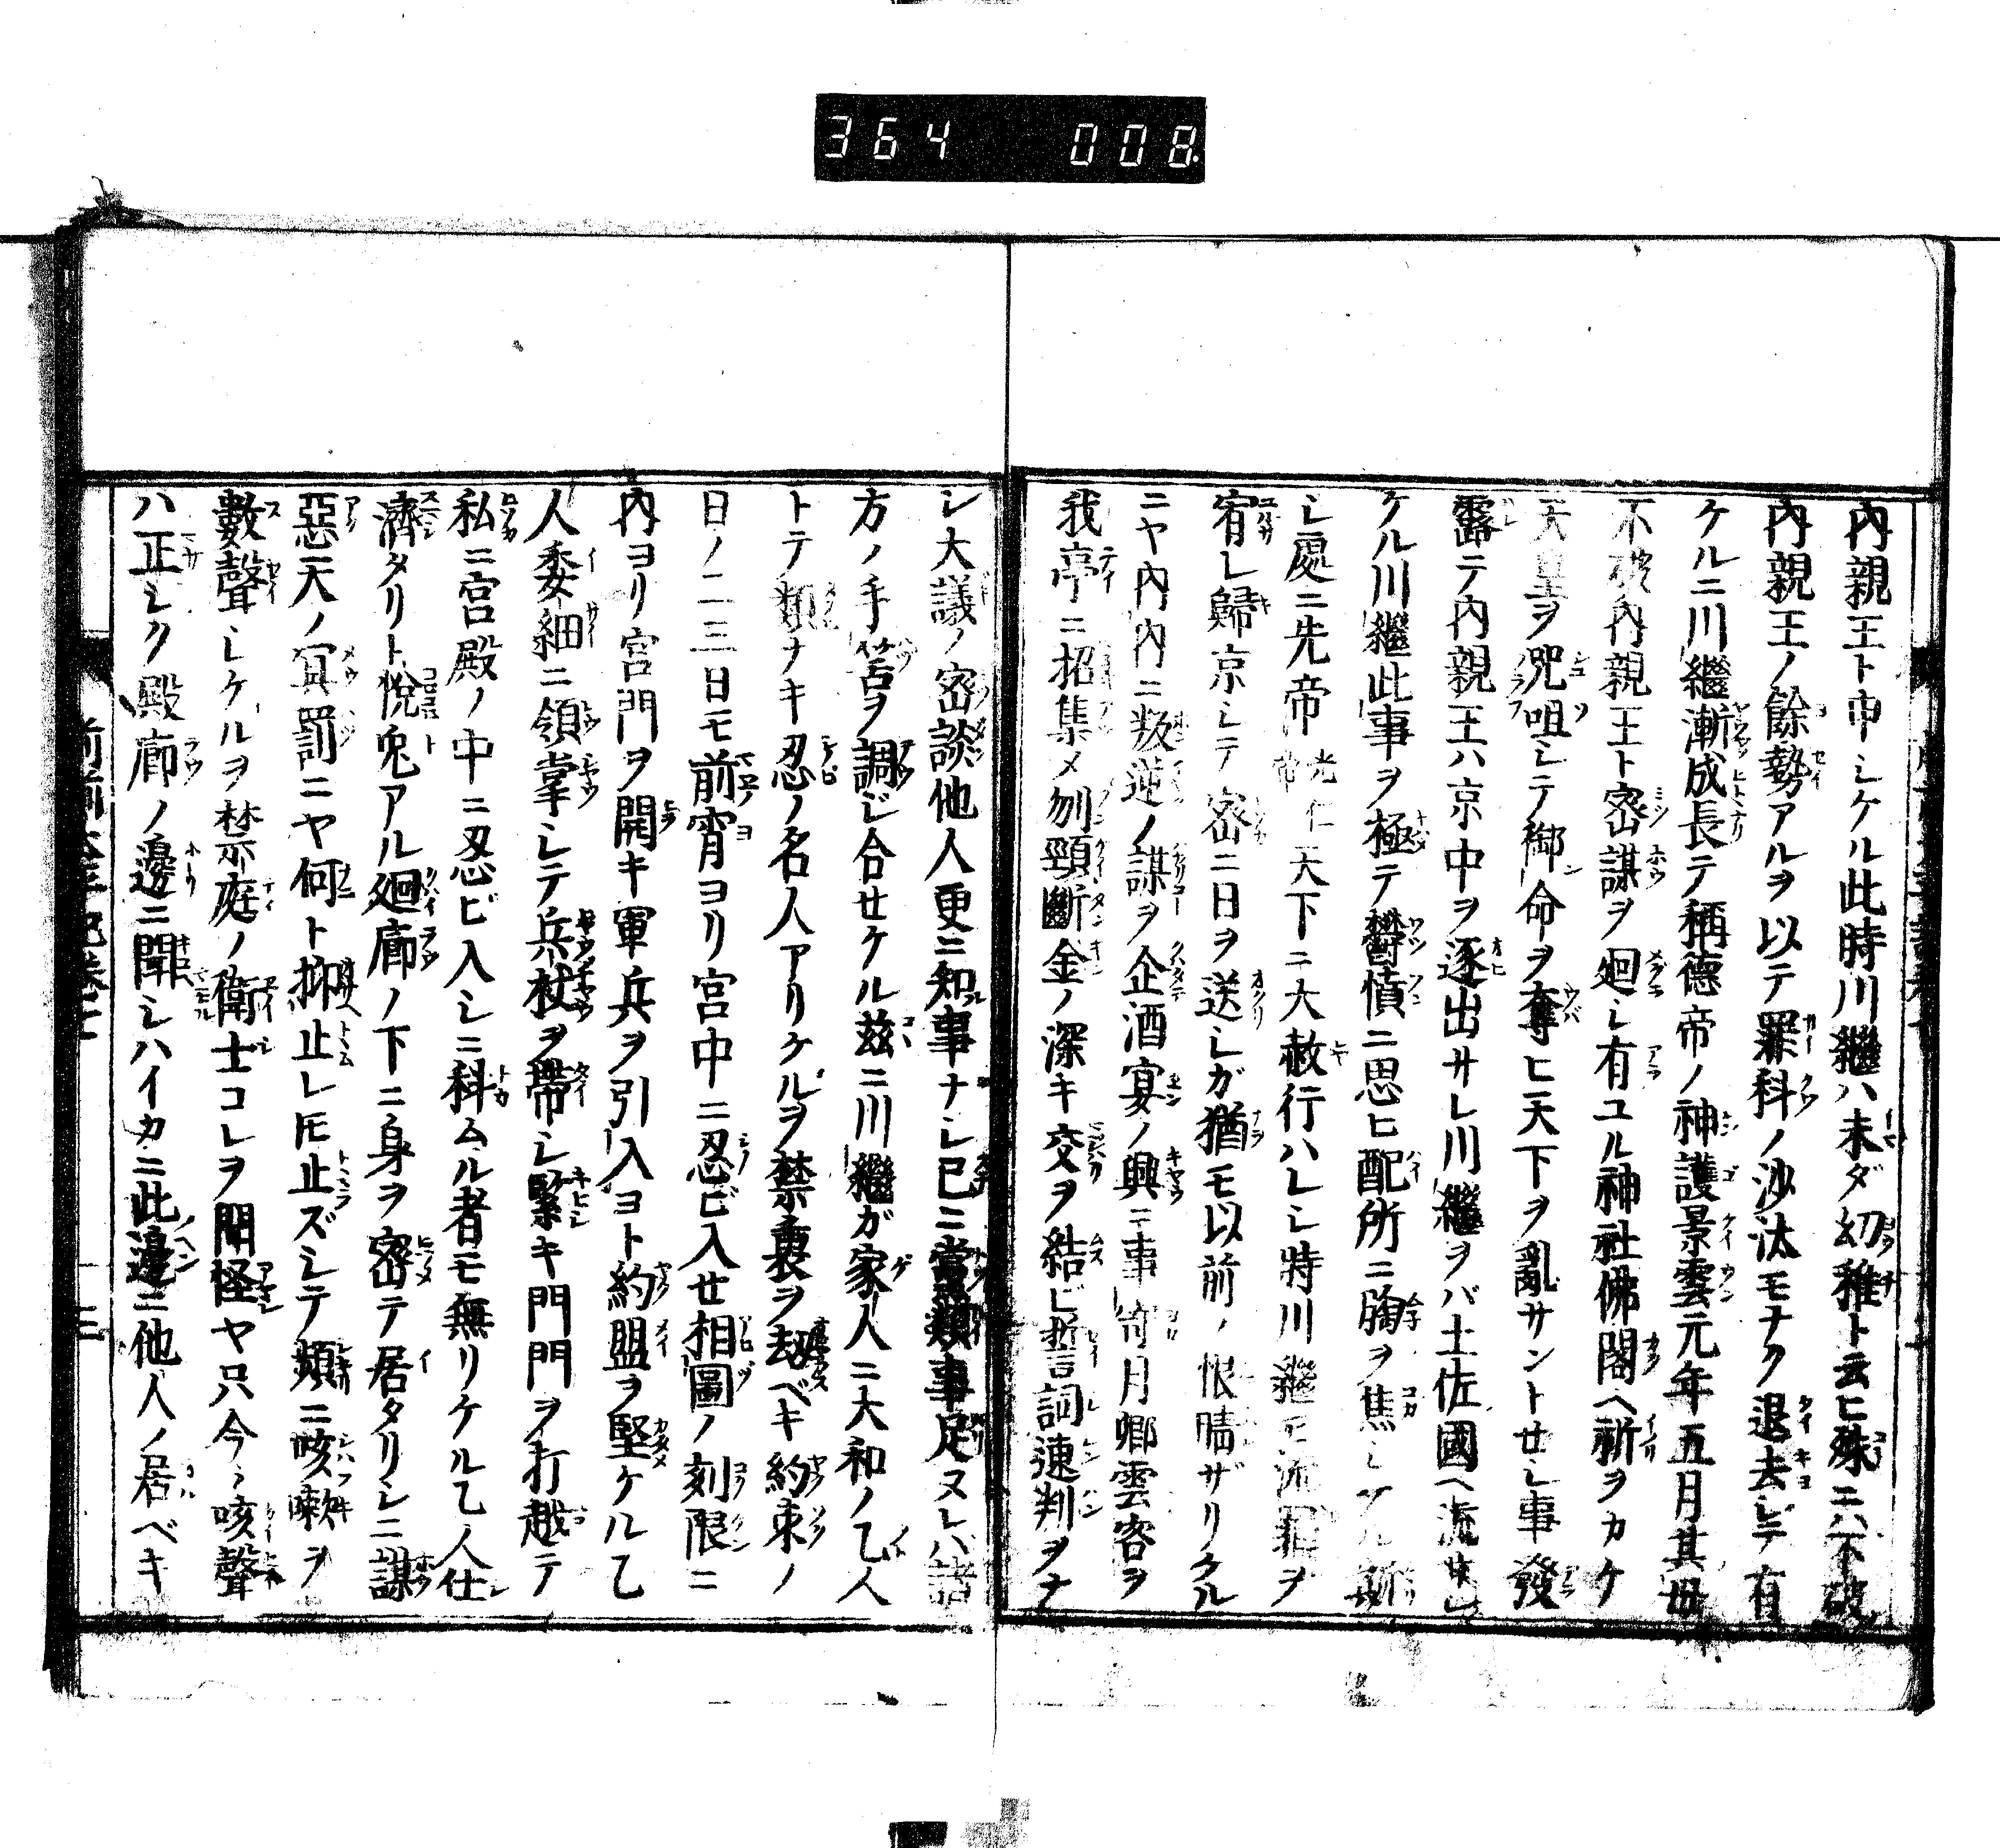 364 008
內親王ト申シケル此時川繼ハ未ダ幼稚ト云ヒ殊ニハ不破
內親王ノ餘勢アルヲ以テ罪科ノ沙汰モナク退去シテ有
ケルニ川繼漸成長テ稱德帝ノ神護景雲元年五月其母
不破內親王ト密謀ヲ廻シ有ユル神社佛閣ヘ祈ヲカケ
天皇ヲ咒咀シテ御命ヲ奪ヒ天下ヲ亂サントせシ事發
露テ內親王ハ京中ヲ逐出サレ川繼ヲバ土佐國ヘ流サレ
ケル川繼此事ヲ極テ欝憤ニ思ヒ配所ニ胸ヲ焦シケル
シ處ニ先帝光仁帝天下ニ大赦行ハレシ時川繼モ流罪ヲ
宥レ歸京シテ密ニ日ヲ送シガ猶モ以前ノ恨晴ザリケル
ニヤ內內ニ叛逆ノ謀ヲ企酒宴ノ興ニ事寄月卿雲客ヲ
我亭ニ招集メ刎頸斷金ノ深キ交ヲ結ビ誓詞連判ヲナ
シ大議ノ密談他人更ニ知事ナシ已ニ黨類事足ヌレバ諸
方ノ手筈ヲ調ジ合せケル茲ニ川繼ガ家人ニ大和ノ乙人
トテ類ナキ忍ノ名人アリケルヲ禁裏ヲ劫ベキ約束ノ
日ノ二三日モ前宵ヨリ宮中ニ忍ビ入せ相圖ノ刻限ニ
內ヨリ宮門ヲ開キ軍兵ヲ引入ヨト約盟ヲ堅ケル乙
人委細ニ領掌シテ兵杖ヲ帶シ緊キ門門ヲ打越テ
私ニ宮殿ノ中ニ忍ビ入シニ科ムル者モ無リケル乙人仕
濟タリト悅兔アル廻廊ノ下ニ身ヲ密テ居タリシニ謀
惡天ノ冥罰ニヤ何ト抑止レ𪜈止ズシテ頻ニ咳嗽ヲ
數聲シケルヲ禁庭ノ衛士コレヲ聞怪ヤ只今ノ咳聲
ハ正シク殿廊ノ邊ニ聞シハイカニ此邊ニ他人ノ居ベキ
前前太平記卷七
二